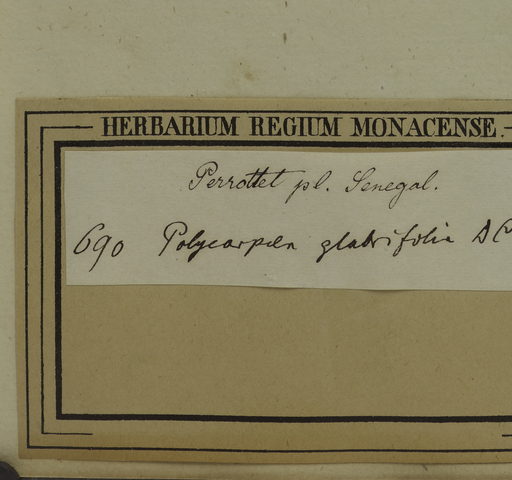 HERBARIUM REGIUM MONACENSE.
Perrottet pl. Senegal.
690 Polycarpæa glabrifolia DC